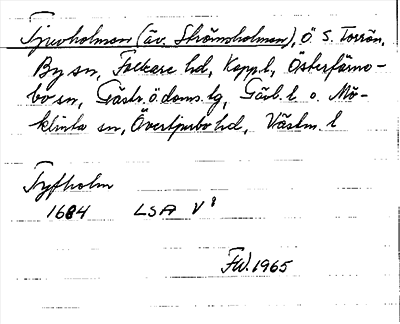 Tjuvholmen (äv. Strömsholmen), Ö S. Torrön,
By sn, Folkare hd, Kopp. l, Österfärne-
bo sn, Gästr. ö. doms. tg, Gävl. l o. Mö-
klinta sn, Övertjurbo hd, Västm. l
Tyfholm
1684 LSA V 8
FW. 1965